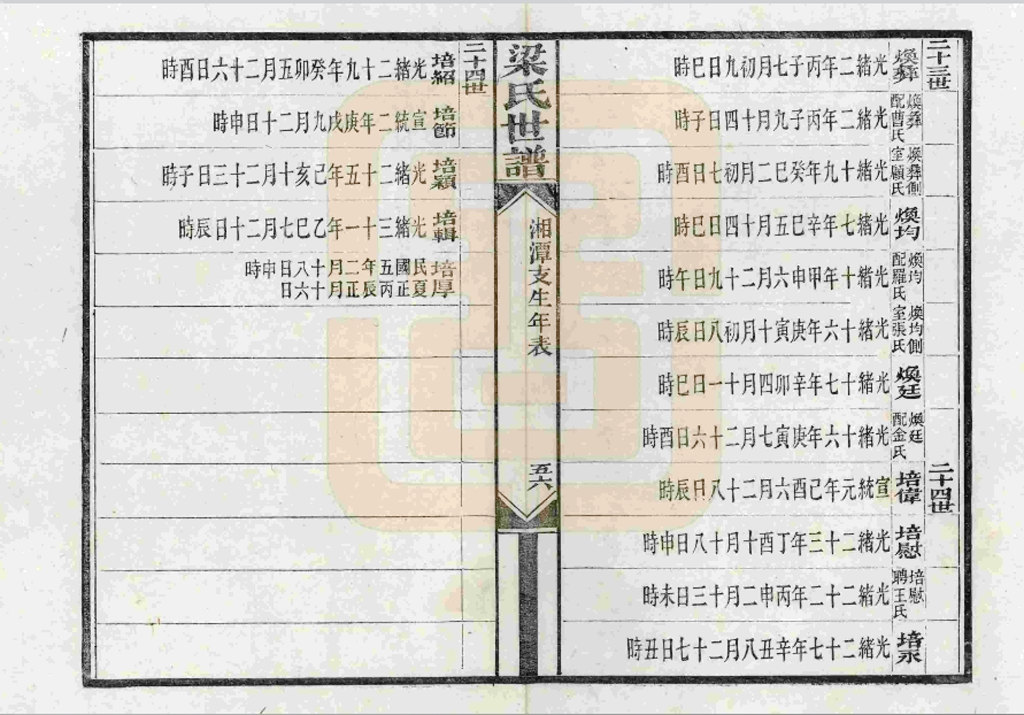 二十三世
煥彜
光緒二年丙子七月初九日巳時
煥彜配曹氏
光緒二年丙子九月十四日子時
煥彜側室顧氏
光緒十九年癸巳二月初七日酉時
煥均
光緒七年辛巳五月十四日巳時
煥均配羅氏
光緒十年甲申六月二十九日午時
煥均側室張氏
光緒十六年庚寅十月初八日辰時
煥廷
光緒十七年辛卯四月十一日巳時
煥廷配金氏
光緒十六年庚寅七月二十六日酉時
二十四世
培偉
宣統元年己酉六月二十八日辰時
培慰
光緒二十三年丁酉十月十八日申時
培慰聘王氏
光緒二十二年丙申二月十三日未時
培永
光緒二十七年辛丑八月二十七日丑時
梁氏世譜
湘潭支生年表
五六
二十四世
培紹
光緒二十九年癸卯五月二十六日酉時
培節
宣統二年庚戌九月二十日申時
培穎
光緒二十五年己亥十月二十三日子時
培輯
光緒三十一年乙巳七月二十日辰時
培厚
民國五年二月十八日申時
夏正丙辰正月十六日